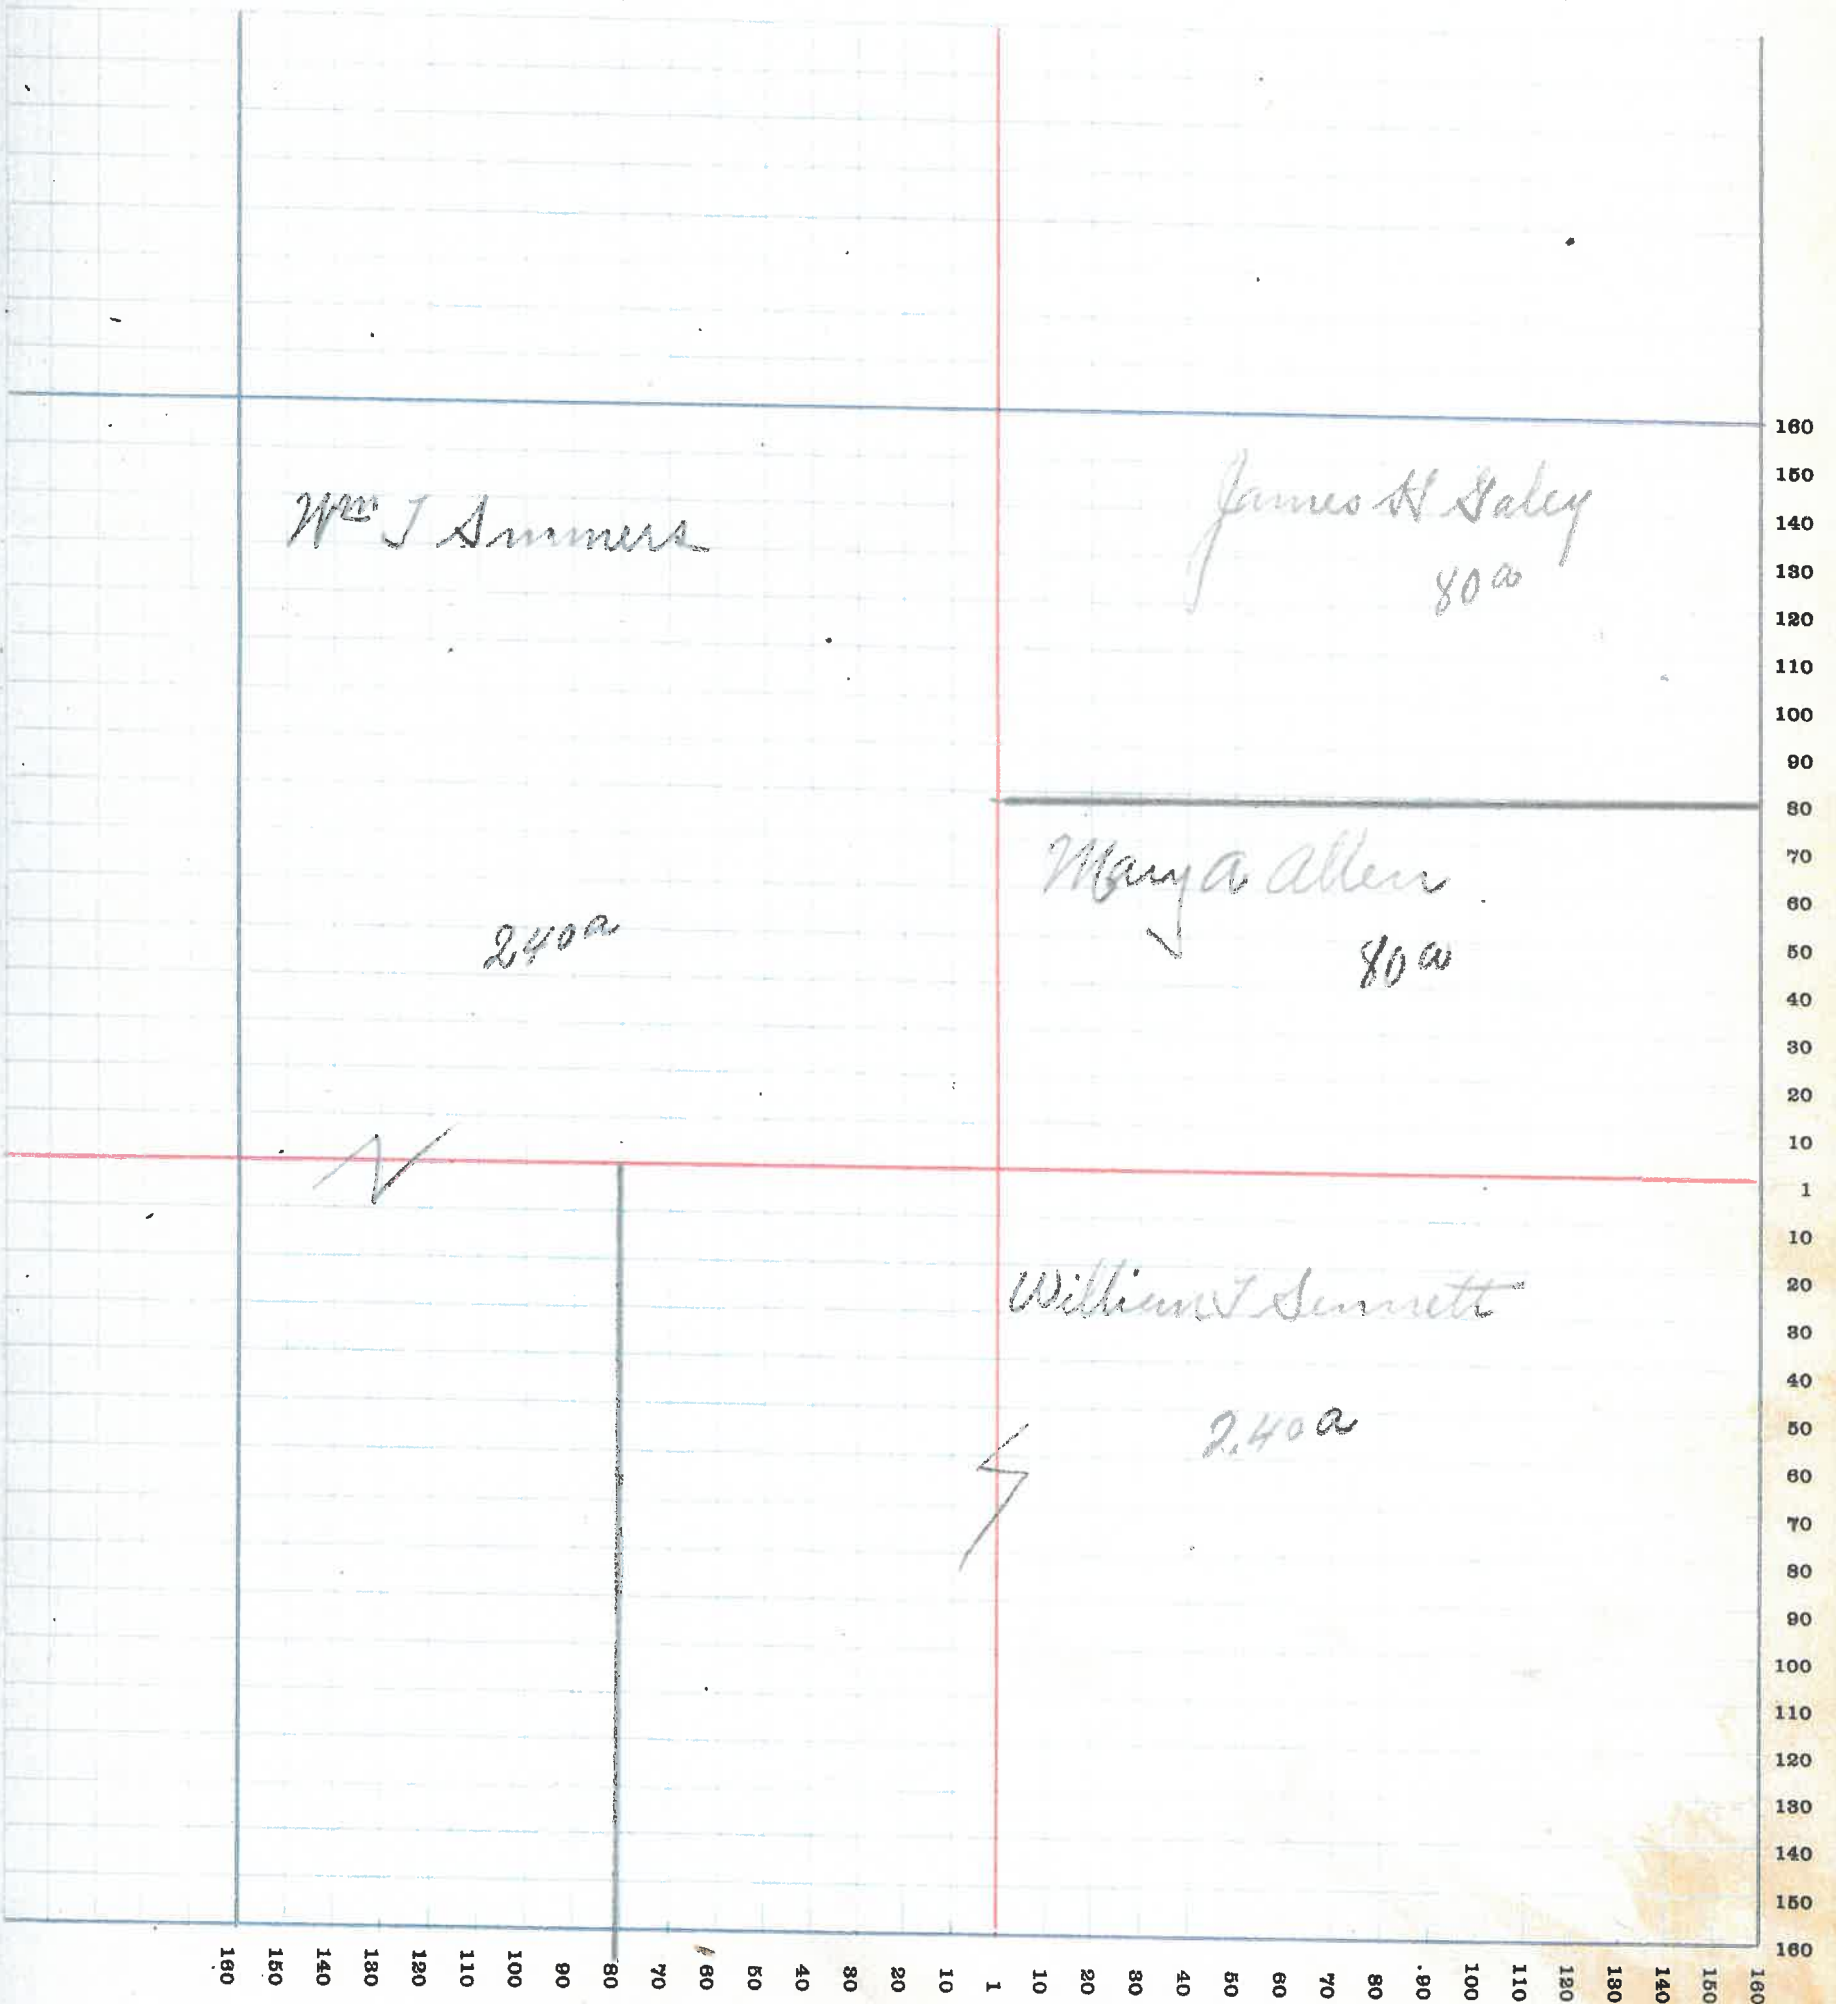 Wm T Summers
240a
James H Galey
80a
Mary A Allen
80a
William T Sennett
240a
160
150
140
130
120
110
100
90
80
70
60
50
40
30
20
10
1
10
20
30
40
50
60
70
80
90
100
110
120
130
140
150
160
160 150 140 130 120 110 100 90 80 70 60 50 40 30 20 10 1 10 20 30 40 50 60 70 80 90 100 110 120 130 140 150 160